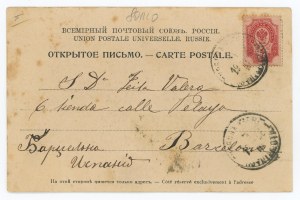 ВСЕМІРНЫЙ ПОЧТОВЫЙ СОЮЗЪ. РОССІЯ.
UNION POSTALE UNIVERSELLE. RUSSIE.
ОТКРЫТОЕ ПИСЬМО. — CARTE POSTALE.
S. Dr Zeita Valera
Tienda calle Pelayo
Барцелона Barcelona
Испанія
На этой сторонѣ пишется только адресъ. — Côté réservé exclusivement à l'adresse